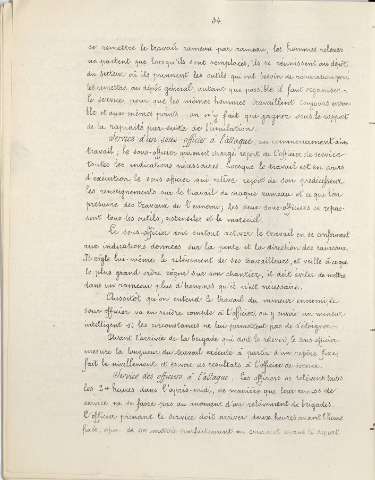 34
se remettre le travail rameau par rameau, les hommes relevés
ne partent que lorsqu'ils sont remplacés, ils se réunissent au dépôt
du secteur où ils prennent les outils qui ont besoin de réparation pour
les remettre au dépôt général, autant que possible il faut organiser
le service pour que les mêmes hommes travaillent toujours ensem-
ble et aux mêmes points, on n'y fait que gagner sous le rapport
de la rapidité par suite de l'émulation.
Service d'un sous-officier à l'attaque, au commencement du
travail, le sous-officier qui en est chargé reçoit de l'officier de service
toutes les indications nécessaires. Lorsque le travail est en cours
d'exécution le sous officier qui relève reçoit de son prédécesseur
les renseignements sur le travail de chaque rameau et ce que l'on
présume des travaux de l'ennemi; les deux sous-officiers se repas-
sent tous les outils, ustensiles et le matériel.
Le sous-officier doit surtout activer le travail en se conformant
aux indications données sur la pente et la direction des rameaux.
Il règle lui-même le relèvement de ses travailleurs et veille à ce que
le plus grand ordre règne sur son chantier, il doit éviter de mettre
dans un rameau plus d'hommes qu'il n'est nécessaire.
Aussitôt qu'on entend le travail du mineur ennemi le
sous-officier va en rendre compte à l'officier ou y envoie un mineur
intelligent si les circonstances ne lui permettent pas de s'éloigner.
Avant l'arrivée de la brigade qui doit le relever, le sous officier
mesure la longueur du travail exécuté à partir d'un repère fixe,
fait le nivellement et envoie ses résultats à l'officier de service.
Service des officiers à l'attaque. Les officiers se relèvent toutes
les 24 heures dans l'après-midi, de manière que leur remise de
service ne se fasse pas au moment d'un relèvement de brigades
L'officier prenant le service doit arriver deux heures avant l'heure
fixée, afin de se mettre parfaitement au courant avant le départ